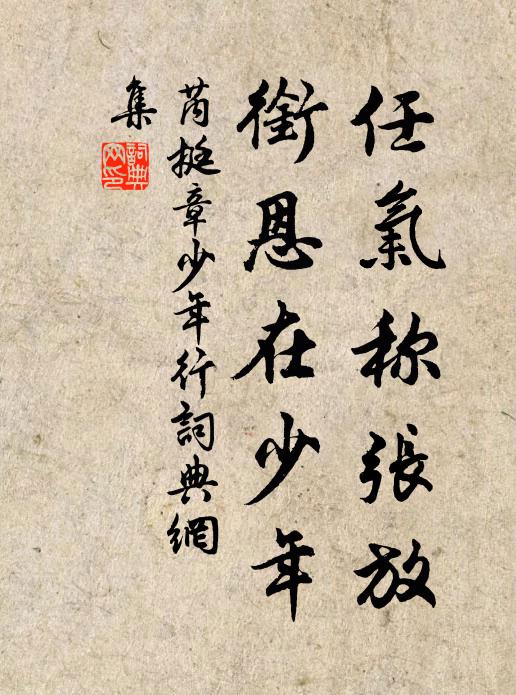 任氣称張放
銜恩在少年
芮挺章少年行詞典網
集
詞典
网印